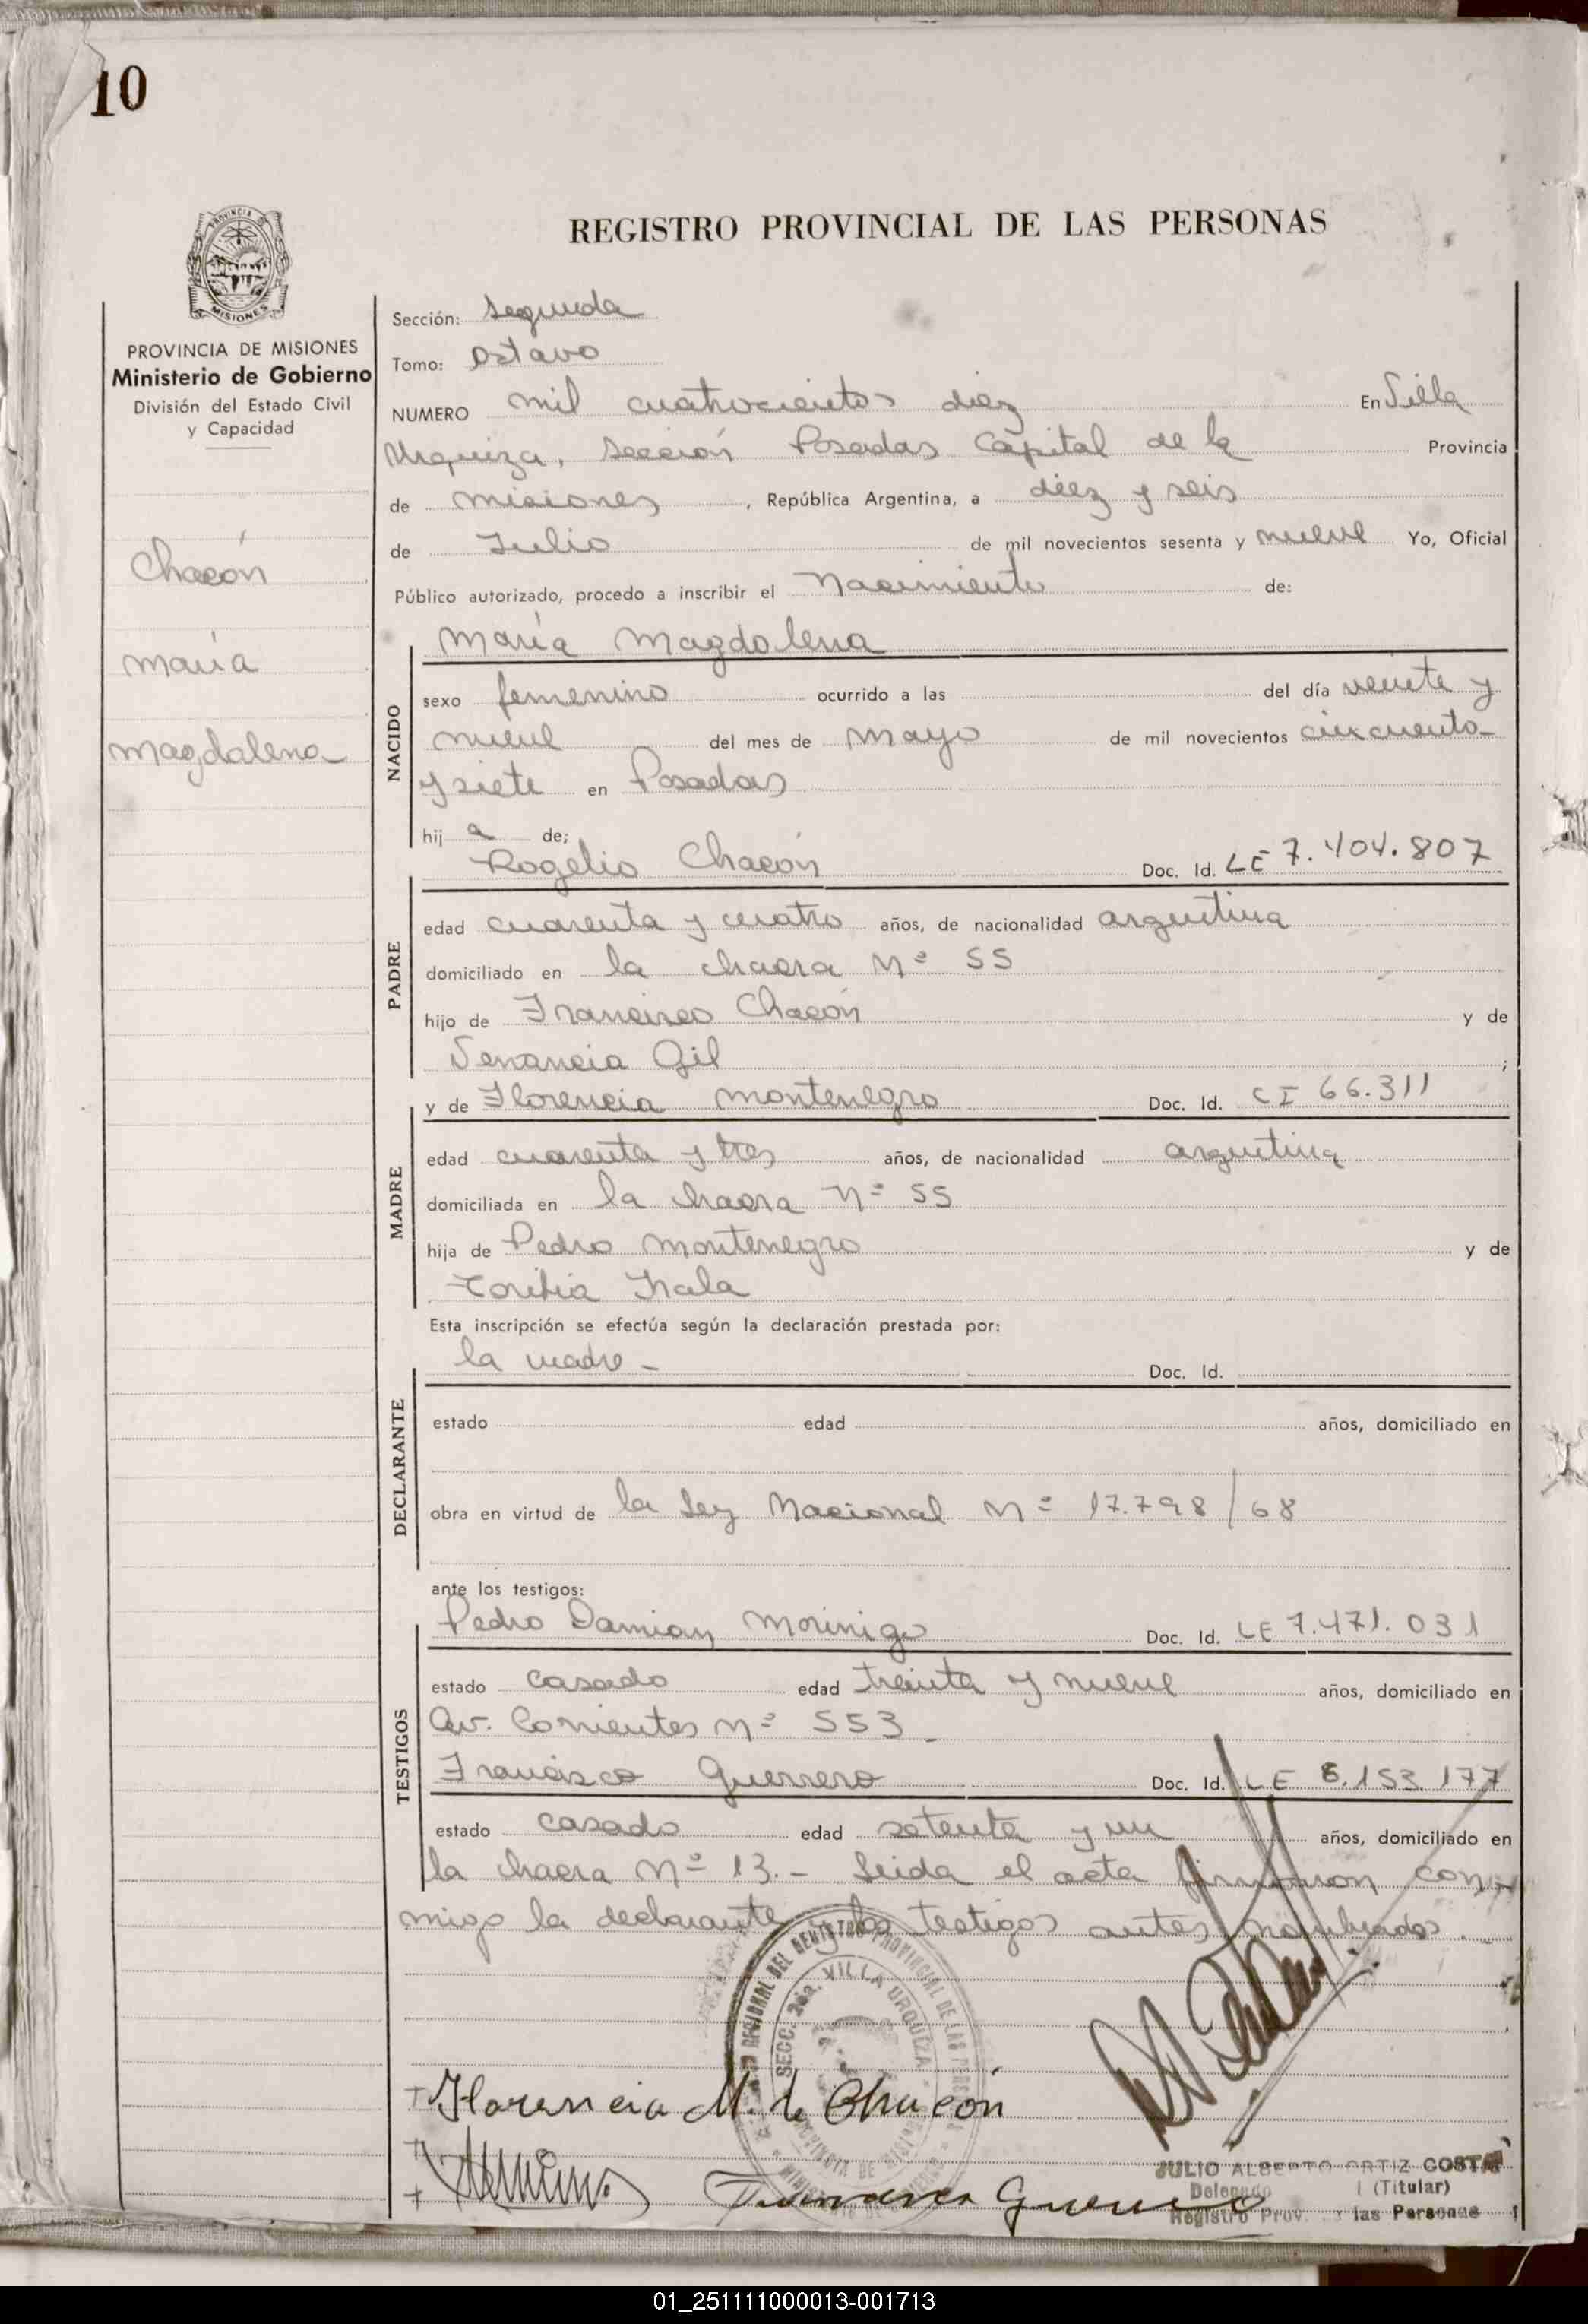 10
REGISTRO PROVINCIAL DE LAS PERSONAS
MISIONES
PROVINCIA DE MISIONES
Ministerio de Gobierno
División del Estado Civil
y Capacidad
Chacón
María
Magdalena
Sección: Segunda
Tomo: Octavo
NUMERO mil cuatrocientos diez En Villa
Urquiza, Sección Posadas Capital de la Provincia
de Misiones, República Argentina, a diez y seis
de Julio de mil novecientos sesenta y nueve Yo, Oficial
Público autorizado, procedo a inscribir el Nacimiento de:
NACIDO
María Magdalena
sexo femenino ocurrido a las del día veinte y
nueve del mes de Mayo de mil novecientos cincuenta
y siete en Posadas
hij a de;
PADRE
Rogelio Chacón Doc. Id. LE 7.404.807
edad cuarenta y cuatro años, de nacionalidad argentina
domiciliado en la chacra Nº 55
hijo de Francisco Chacón y de
Venancia Gil ;
MADRE
y de Florencia Montenegro Doc. Id. CI 66.311
edad cuarenta y tres años, de nacionalidad argentina
domiciliada en la chacra Nº 55
hija de Pedro Montenegro y de
Toribia Irala
Esta inscripción se efectúa según la declaración prestada por:
DECLARANTE
la madre - Doc. Id.
estado edad años, domiciliado en
obra en virtud de la Ley Nacional Nº 17.798/68
ante los testigos:
TESTIGOS
Pedro Damian Morinigo Doc. Id. LE 7.471.031
estado casado edad treinta y nueve años, domiciliado en
Av. Corrientes Nº 553 -
Francisco Guerrero Doc. Id. LE 6.153.177
estado casado edad setenta y un años, domiciliado en
la chacra Nº 13.- Leida el acta firmaron con-
migo la declarante y los testigos antes nombrados.-
REGIONAL DEL REGISTRO PROVINCIAL DE LAS PERSONAS
SECC. 2da. VILLA URQUIZA
PROVINCIA DE MISIONES
Florencia M. de Chacón
Francisco Guerrero
JULIO ALBERTO ORTIZ COSTA
Delegado (Titular)
Registro Prov. las Personas
01_251111000013-001713